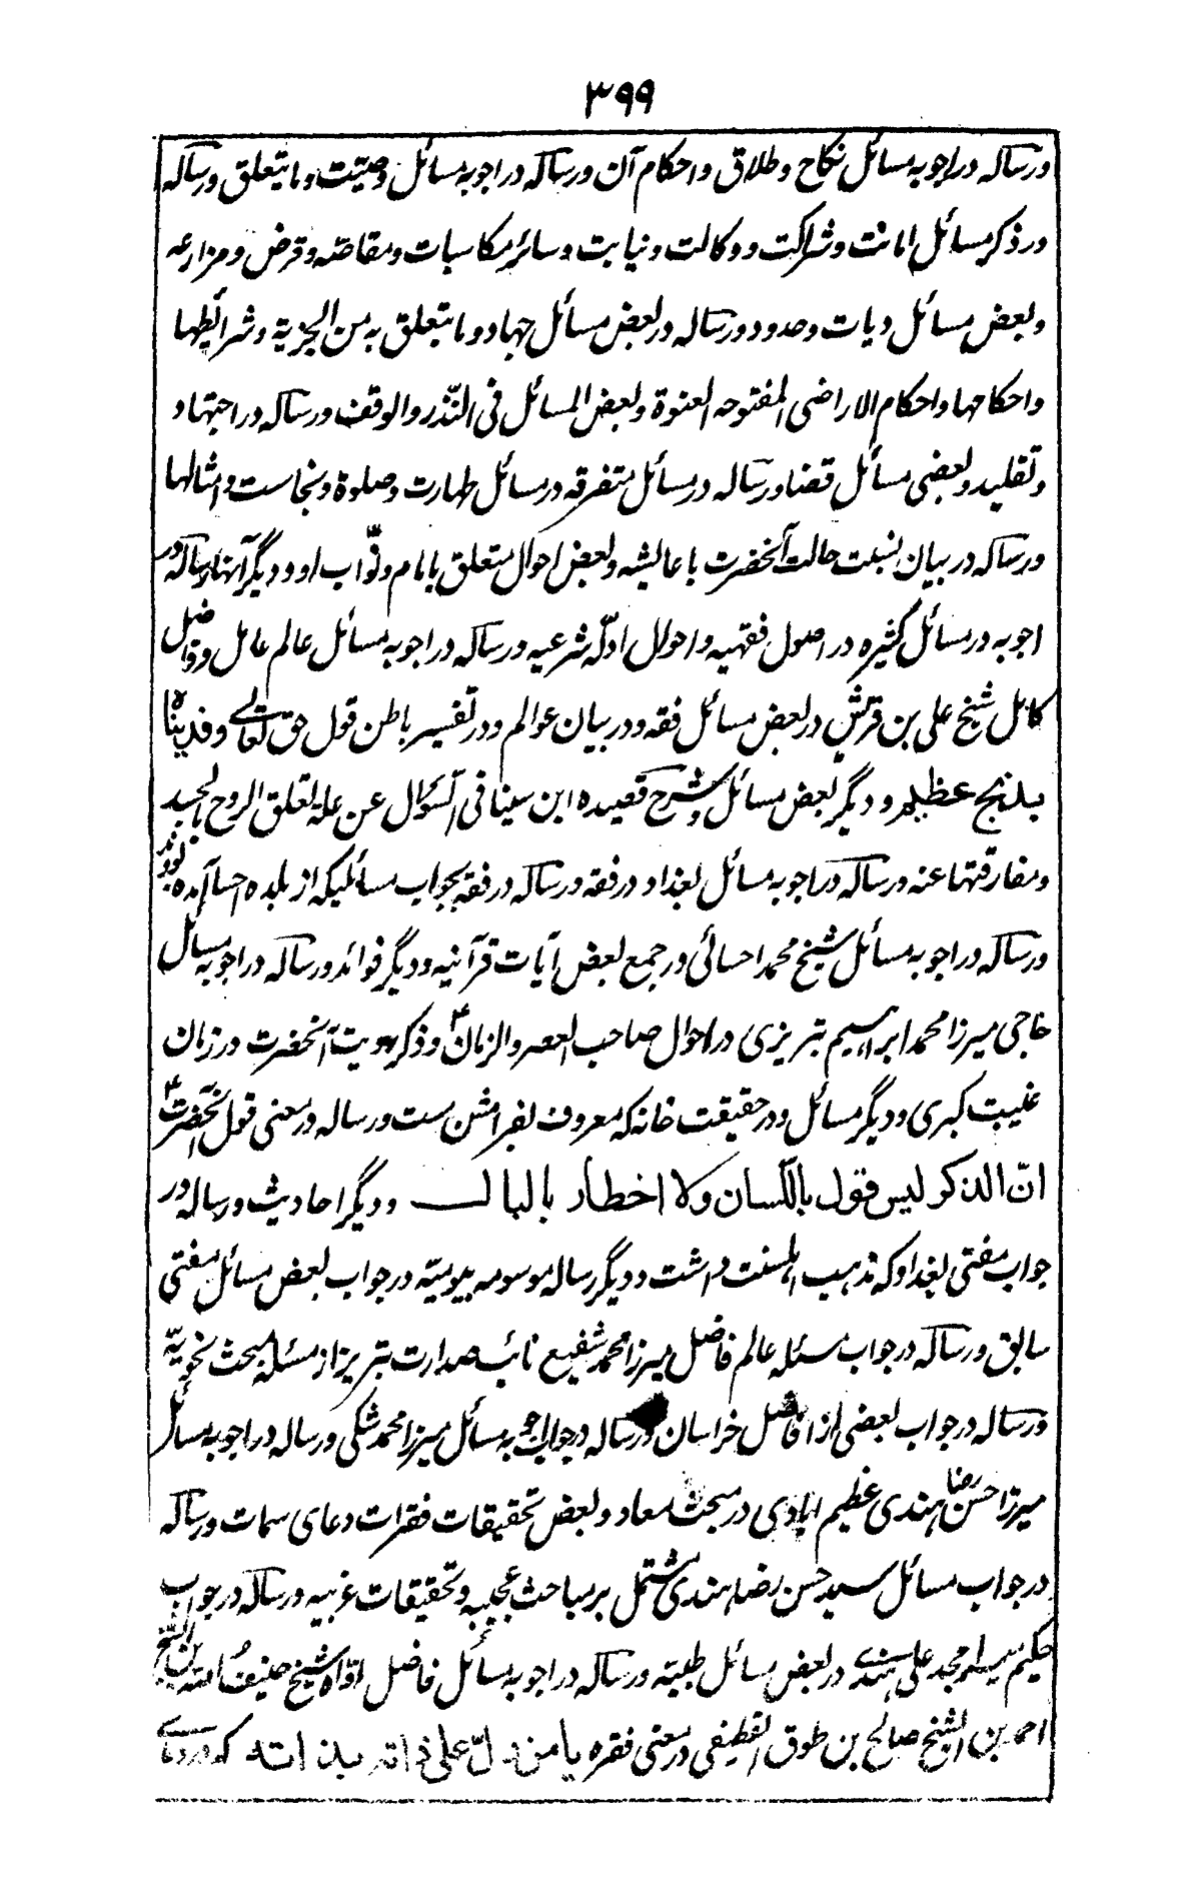 ۳۹۹
ورساله در اجوبه مسائل نکاح و طلاق و احکام آن ورساله در اجوبه مسائل وصیّت و ما یتعلق ورساله
در ذکر مسائل امانت و شراکت و وکالت و نیابت و سائر مکاسبات و مقاصّه و قرض و مزارعه
و بعض مسائل دیات و حدود ورساله در بعض مسائل جهاد و ما یتعلق به من الجزیة و شرائطها
و احکامها و احکام الاراضی المفتوحه العنوة و بعض المسائل فی النّذر والوقف ورساله در اجتهاد
و تقلید و بعضی مسائل قضا ورساله در مسائل متفرقه در مسائل طهارت و صلوة و نجاست و امثالها
ورساله در بیان نسبت حالت آنحضرت با عایشه و بعض احوال متعلق بامام و نوّاب او و دیگر آنها ورساله در
اجوبه در مسائل کثیره در اصول فقهیه و احوال ادلّه شرعیه ورساله در اجوبه مسائل عالم عامل و فاضل
کامل شیخ علی بن قرش در بعض مسائل فقه و در بیان عوالم و در تفسیر باطن قول حق تعالی وفدیناه
بذبح عظیم و دیگر بعض مسائل و شرح قصیده ابن سینا فی السّؤال عن علة تعلق الروح بالجسد
و مفارقتها عنه ورساله در اجوبه مسائل بغداد در فقه ورساله در فقه بجواب مسائلیکه از بلده احسا آمده بودند
ورساله در اجوبه مسائل شیخ محمد احسائی در جمع بعض آیات قرآنیه و دیگر فوائد ورساله در اجوبه مسائل
حاجی میرزا محمد ابراهیم تبریزی در احوال صاحب العصر والزمانؑ و ذکر رویت آنحضرت در زمان
غیبت کبری و دیگر مسائل و در حقیقت خانه که معروف بفرامشن ست ورساله در معنی قول آنحضرتؑ
انّ الذکر لیس قول باللّسان ولا اخطار بالبال و دیگر احادیث ورساله در
جواب مفتی بغداد که مذهب اهلسنت داشت و دیگر رساله موسومه بیومیّه در جواب بعض مسائل مفتی
سابق ورساله در جواب مسئله عالم فاضل میرزا محمد شفیع نائب صدارت تبریز از مسئله مبحث نحویّه
ورساله در جواب بعضی از افاضل خراسان ورساله در جواب اجوبه مسائل میرزا محمد شکی ورساله در اجوبه مسائل
میرزا حسن رضا هندی عظیم ابادی در مبحث معاد و بعض تحقیقات فقرات دعای سمات ورساله
در جواب مسائل سید حسن رضا هندی مشتمل بر مباحث عجیبه و تحقیقات غریبه ورساله در جواب
حکیم سید امجد علی هندی در بعض مسائل طبیّه ورساله در اجوبه مسائل فاضل اوّاه شیخ ضیف الله بن الشیخ
احمد بن الشیخ صالح بن طوق القطیفی در معنی فقره یا من دلّ علی ذاته بذاته که در دعای